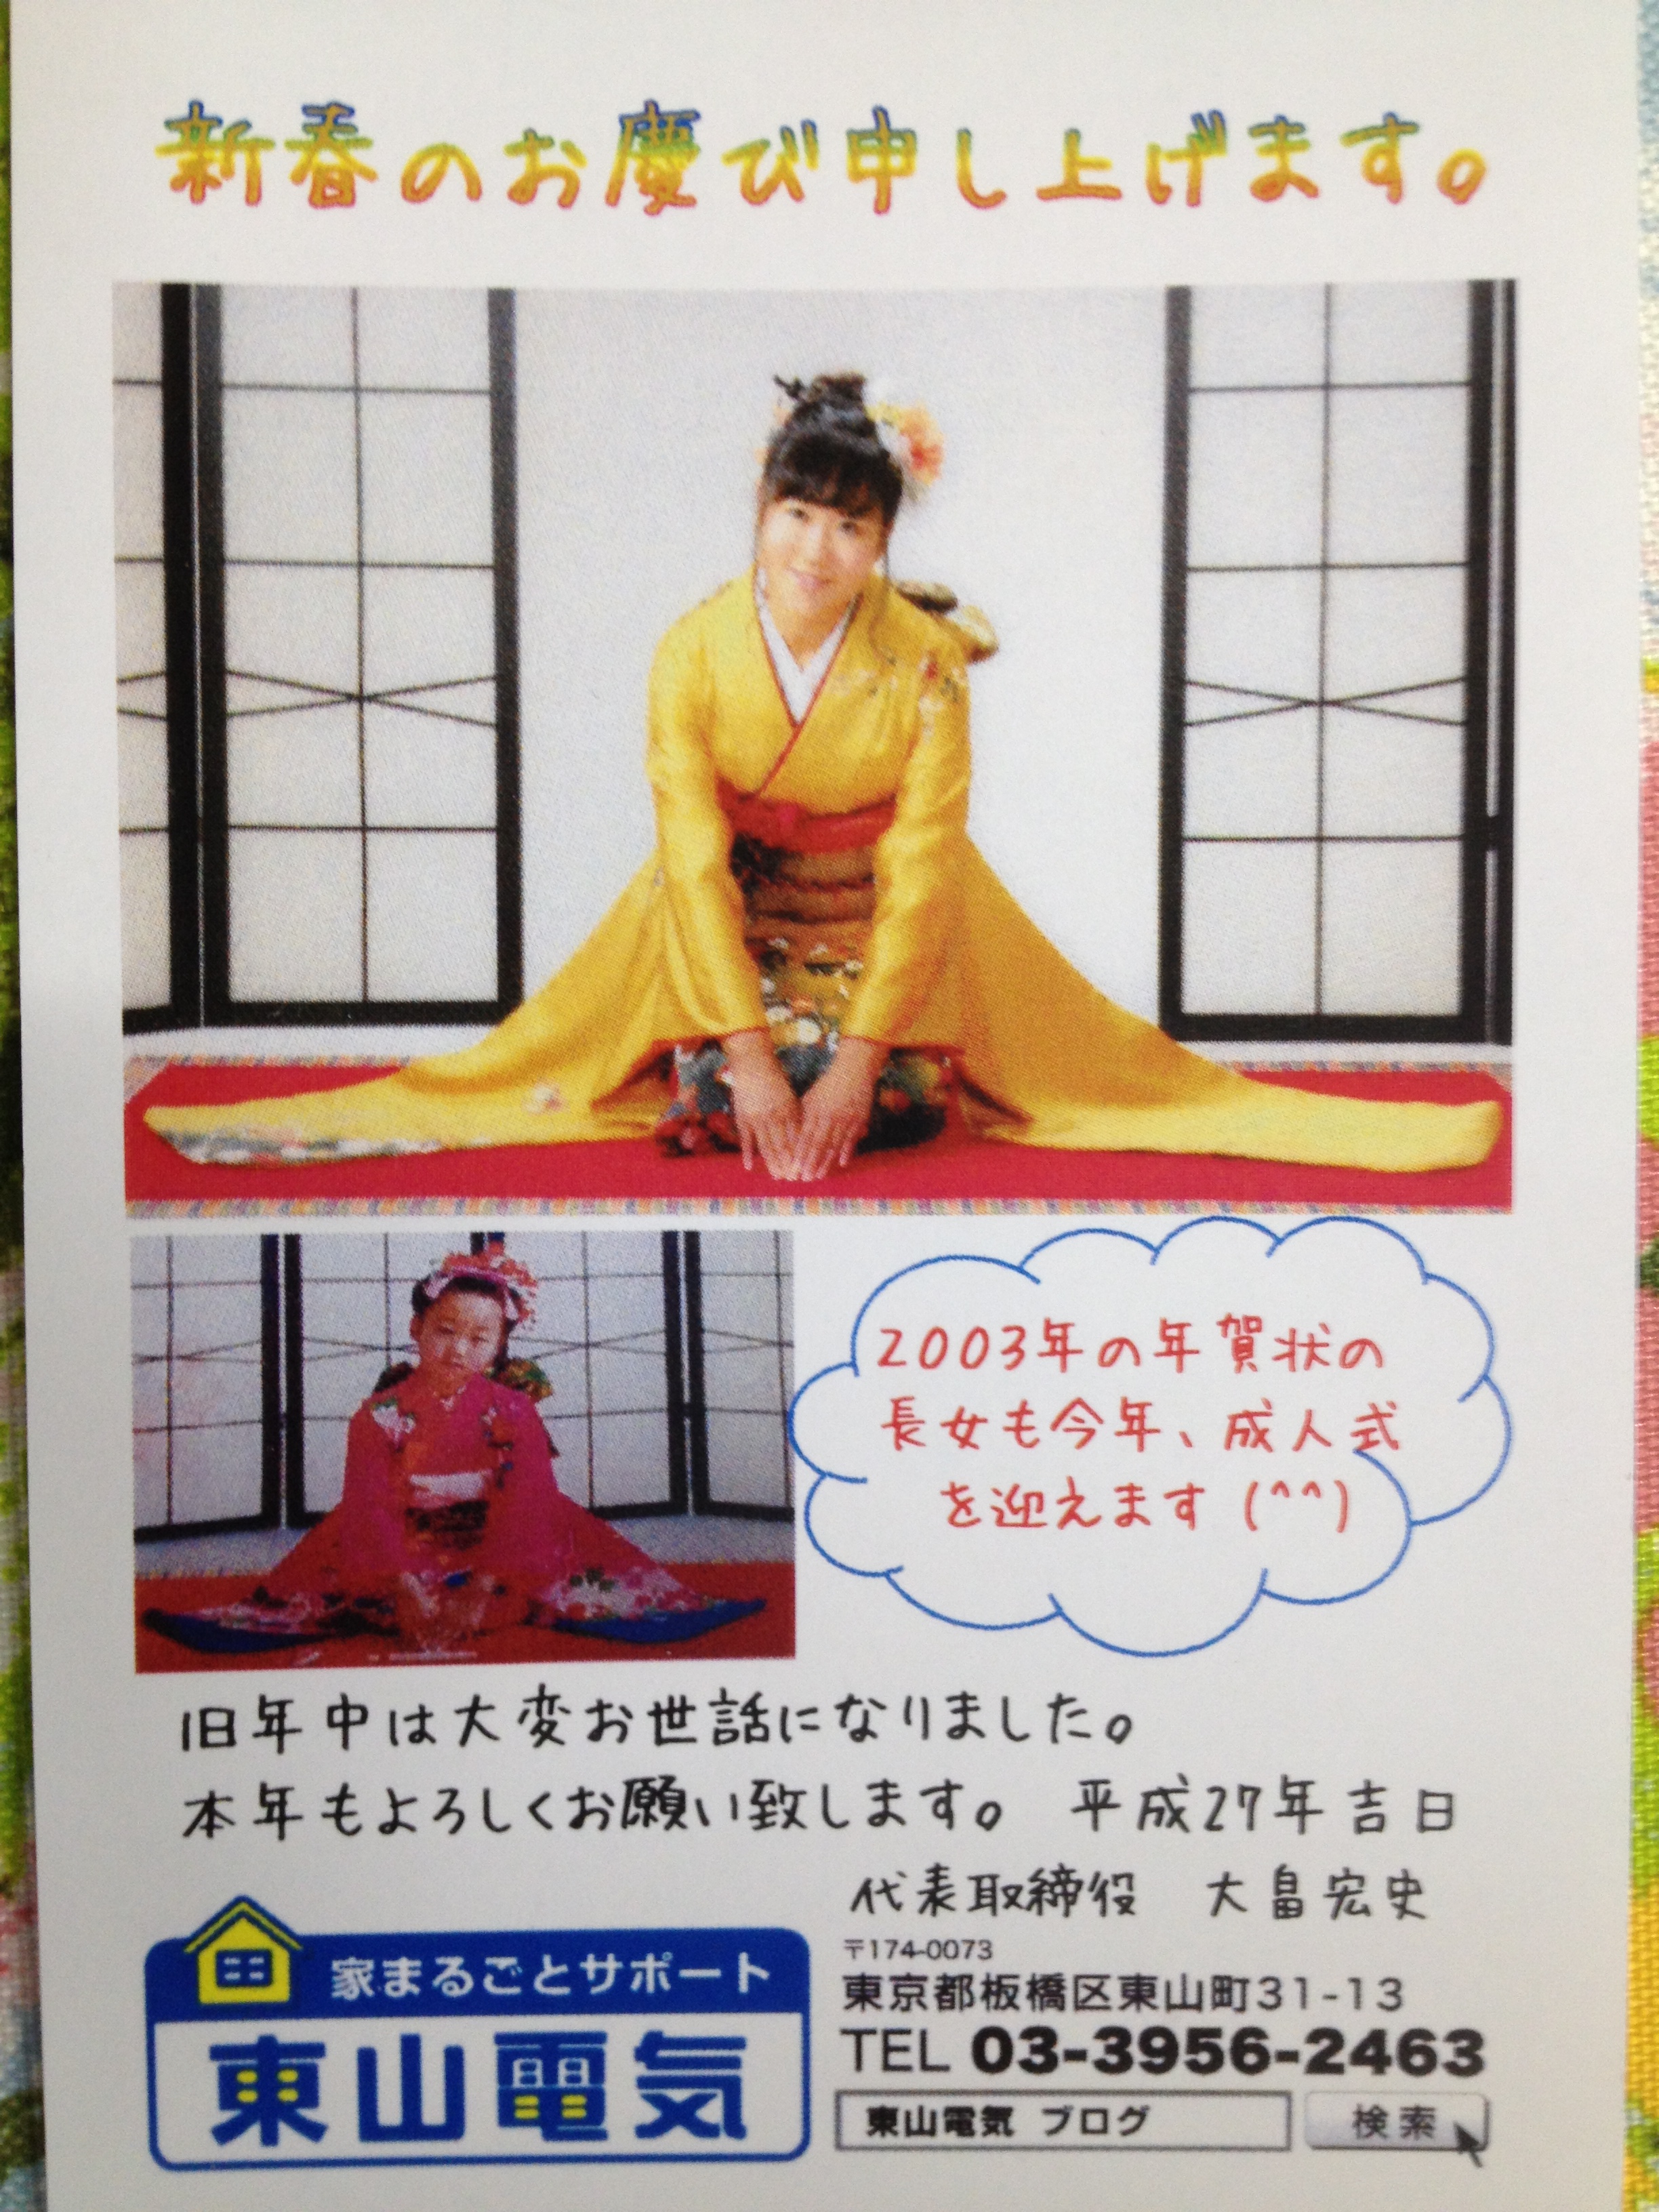 新春のお慶び申し上げます。
2003年の年賀状の
長女も今年、成人式
を迎えます(^^)
旧年中は大変お世話になりました。
本年もよろしくお願い致します。 平成27年吉日
代表取締役 大畠宏史
家まるごとサポート
東山電気
〒174-0073
東京都板橋区東山町31-13
TEL 03-3956-2463
東山電気 ブログ 検索